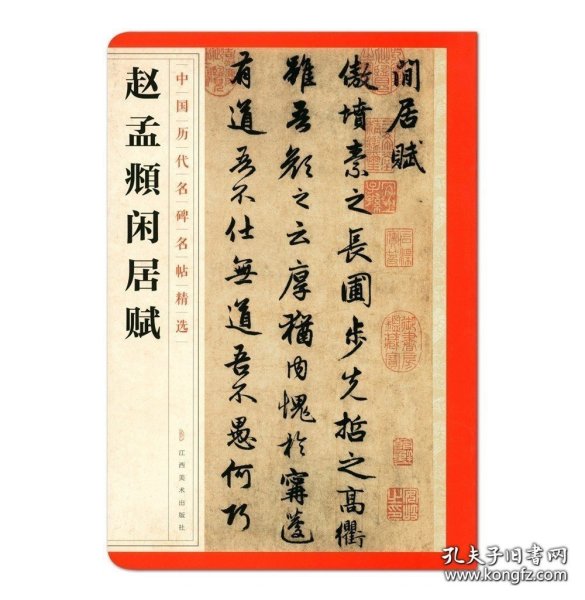 赵孟頫闲居赋
中国历代名碑名帖精选
江西美术出版社
閒居賦
傲墳素之長圃步先哲之高衢
雖吾顏之云厚猶内愧於甯蘧
有道吾不仕無道吾不愚何巧
孔夫子旧书网
kongfz.com